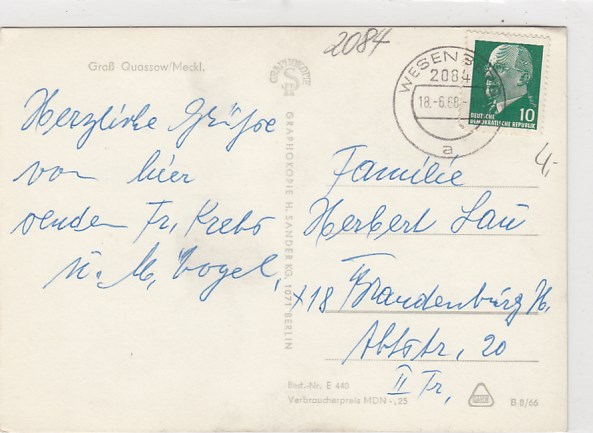 2084
Groß Quassow/Meckl.
WESENB
2084
18.-6.68-
a
DEUTSCHE
DEMOKRATISCHE REPUBLIK
10
4,-
Herzliche Grüße
von hier
senden Fr. Krebs
u. M. Vogel,
GRAPHOKOPIE H. SANDER KG, 1071 BERLIN
Familie
Herbert Lau
x18 Brandenburg H.
Abtstr, 20
II Tr,
Best.-Nr. E 440
Verbraucherpreis MDN -,25
B 8/66